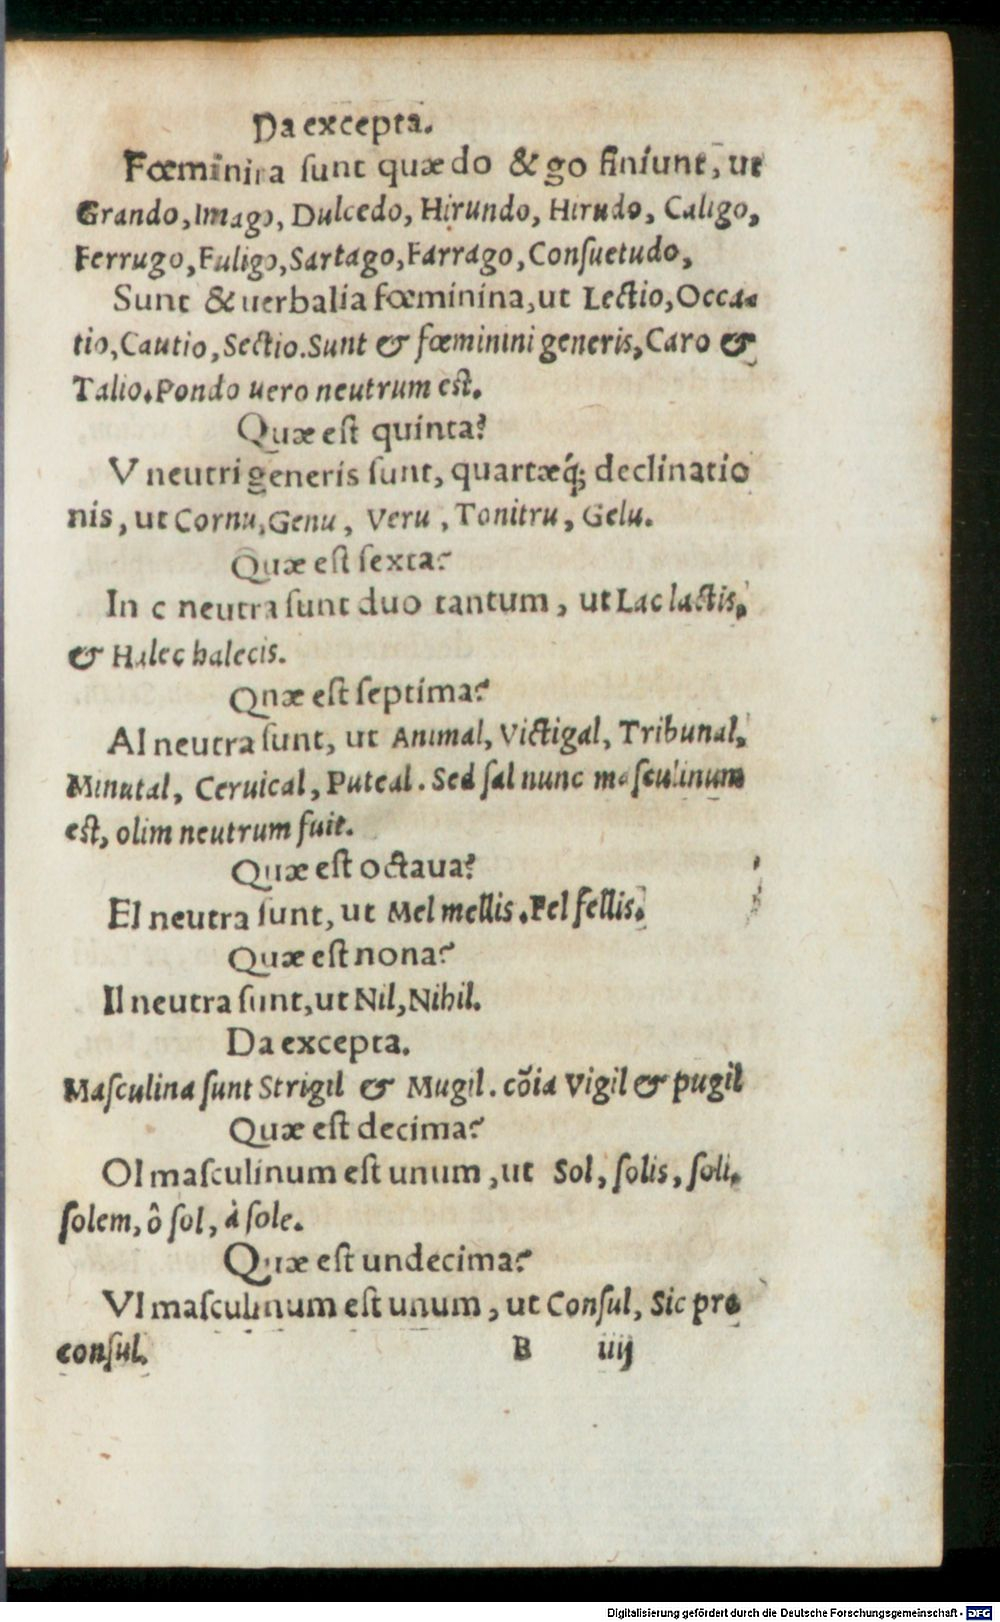 Da excepta.
Fœminina sunt quæ do & go finiunt, ut
Grando, Imago, Dulcedo, Hirundo, Hirudo, Caligo,
Ferrugo, Fuligo, Sartago, Farrago, Consuetudo,
Sunt & uerbalia fœminina, ut Lectio, Occa-
tio, Cautio, Sectio. Sunt & fœminini generis, Caro &
Talio. Pondo uero neutrum est.
Quæ est quinta?
V neutri generis sunt, quartæq́; declinatio
nis, ut Cornu, Genu, Veru, Tonitru, Gelu.
Quæ est sexta?
In c neutra sunt duo tantum, ut Lac lactis,
& Halec halecis.
Qnæ est septima?
Al neutra sunt, ut Animal, Victigal, Tribunal,
Minutal, Ceruical, Puteal. Sed sal nunc masculinum
est, olim neutrum fuit.
Quæ est octaua?
El neutra sunt, ut Mel mellis. Fel fellis.
Quæ est nona?
Il neutra sunt, ut Nil, Nihil.
Da excepta.
Masculina sunt Strigil & Mugil. cõia Vigil & pugil
Quæ est decima?
Ol masculinum est unum, ut Sol, solis, soli,
solem, ô sol, à sole.
Quæ est undecima?
Vl masculinum est unum, ut Consul, Sic pro
consul.
B iiij
Digitalisierung gefördert durch die Deutsche Forschungsgemeinschaft - DFG